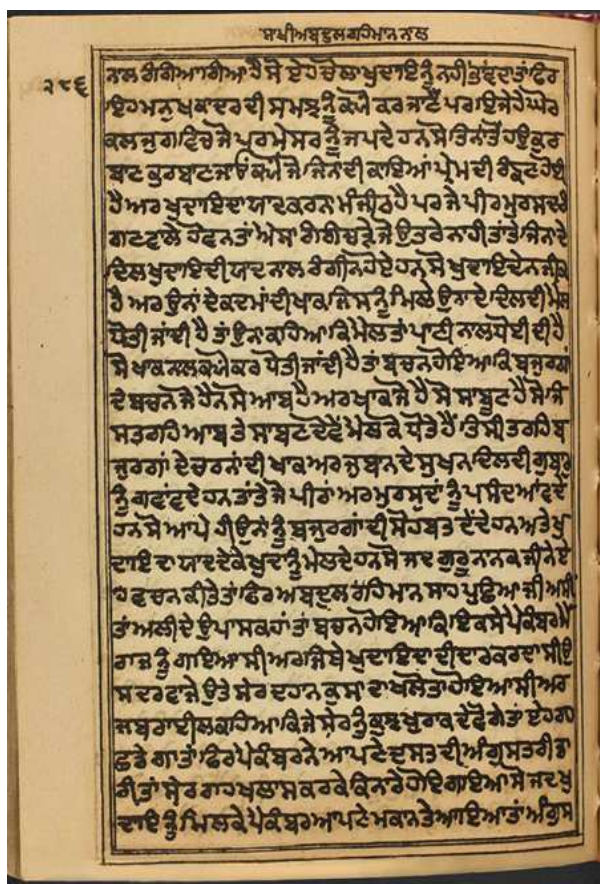 ਸਾਖੀ ਅਬਦੁਲ ਰਹਿਮਾਨ ਨਾਲ
੨੮੬
ਨਾਲ ਰੰਗਿਆ ਗਿਆ ਹੈ ਸੋ ਏਹ ਚੋਲਾ ਖੁਦਾਇ ਨੂੰ ਨਹੀ ਤਾਂ ਫਿਰ
ਇਹ ਮਨੁਖ ਕਾਦਰ ਦੀ ਸਮਝ ਨੂੰ ਕਯੋਂ ਕਰ ਜਾਣੈ ਪਰ ਇਜੇਹੇ ਘੋਰ
ਕਲਜੁਗ ਵਿਚ ਜੋ ਪਰਮੇਸਰ ਨੂੰ ਜਪਦੇ ਹਨ ਸੋ ਤਿਨਾਂ ਤੋਂ ਹਉ ਕੁਰ
ਬਾਣ ਕੁਰਬਾਣ ਜਾਂਓ ਕਯੋਂ ਜੋ ਜਿਨ ਦੀ ਕਾਇਆਂ ਪ੍ਰੇਮ ਦੀ ਰੰਙਣ ਹੋਈ
ਹੈ ਅਰ ਖੁਦਾਇ ਦਾ ਯਾਦ ਕਰਨ ਮੰਜੀਠ ਹੈ ਪਰ ਜੇ ਪੀਰ ਮੁਰਸਦ ਰੰ
ਗਣ ਵਾਲੇ ਹੋਵਨ ਤਾਂ ਐਸਾ ਰੰਗ ਚੜੇ ਜੋ ਉਤਰੇ ਨਾਹੀ ਤਾਂ ਤੇ ਜਿਨਾ ਦੇ
ਦਿਲ ਖੁਦਾਇ ਦੀ ਯਾਦ ਨਾਲ ਰੰਗੀਨ ਹੋਏ ਹਨ ਸੋ ਖੁਦਾਇ ਦੇ ਨਜੀਕ
ਹੈ ਅਰ ਉਨਾਂ ਦੇ ਕਦਮਾਂ ਦੀ ਖਾਕ ਜਿਸ ਨੂੰ ਮਿਲੇ ਉਨਾ ਦੇ ਦਿਲ ਦੀ ਮੈਲ
ਧੋਤੀ ਜਾਂਦੀ ਹੈ ਤਾਂ ਉਨ ਕਹਿਆ ਕਿ ਮੈਲ ਤਾਂ ਪਾਣੀ ਨਾਲ ਧੋਈ ਦੀ ਹੈ
ਸੋ ਖਾਕ ਨਾਲ ਕਯੋਂ ਕਰ ਧੋਤੀ ਜਾਂਦੀ ਹੈ ਤਾਂ ਬਚਨ ਹੋਇਆ ਕਿ ਬਜੁਰਗਾਂ
ਦੇ ਬਚਨ ਜੋ ਹੈਨ ਸੋ ਆਬ ਹੈ ਅਰ ਖਾਕ ਜੋ ਹੈ ਸੋ ਸਾਬੂਣ ਹੈ ਸੋ ਜਿ
ਸ ਤਰਹਿ ਆਬ ਤੇ ਸਾਬਣ ਦੋਵੈਂ ਮੈਲ ਕੋ ਧੋਤੇ ਹੈਂ ਤਿਸੀ ਤਰਹਿ ਬ
ਜੁਰਗਾਂ ਦੇ ਚਰਨਾਂ ਦੀ ਖਾਕ ਅਰ ਜੁਬਾਨ ਦੇ ਸੁਖਨ ਦਿਲ ਦੀ ਗੁਬਾਰ
ਨੂੰ ਗਵਾਂਵਦੇ ਹਨ ਤਾਂ ਤੇ ਜੋ ਪੀਰਾਂ ਅਰ ਮੁਰਸਦਾਂ ਨੂੰ ਪਸਿੰਦ ਆਂਵਦੇ
ਹਨ ਸੋ ਆਪੇ ਹੀ ਉਨਾਂ ਨੂੰ ਬਜੁਰਗਾਂ ਦੀ ਸੋਹਬਤ ਦੇਂਦੇ ਹਨ ਅਤੇ ਖੁ
ਦਾਇ ਦਾ ਯਾਦ ਦੇਕੇ ਖੁਦਾ ਨੂੰ ਮੇਲਦੇ ਹਨ ਸੋ ਜਦ ਗੁਰੂ ਨਾਨਕ ਜੀ ਨੇ ਏ
ਹ ਵਚਨ ਕੀਤੇ ਤਾਂ ਫਿਰ ਅਬਦੁਲ ਰਹਿਮਾਨ ਸਾਹ ਪੁਛਿਆ ਜੀ ਅਸੀਂ
ਤਾਂ ਅਲੀ ਦੇ ਉਪਾਸਕ ਹਾਂ ਤਾਂ ਬਚਨ ਹੋਇਆ ਕਿ ਇਕ ਸਮੇ ਪੈਕੰਬਰ ਮੈ
ਰਾਜ ਨੂੰ ਗਇਆ ਸੀ ਅਰ ਜਿਥੇ ਖੁਦਾਇ ਦਾ ਦੀਦਾਰ ਕਰਦਾ ਸੀ ਉ
ਸ ਦਰਵਾਜੇ ਉਤੇ ਸੇਰ ਦਹਨ ਕੁਸਾ ਦਾ ਖਲੋਤਾ ਹੋਇਆ ਸੀ ਅਰ
ਜਬਰਾਈਲ ਕਹਿਆ ਕਿ ਜੇ ਸੇਰ ਨੂੰ ਕੁਛ ਖੁਰਾਕ ਦੇਵੋਗੇ ਤਾਂ ਏਹ ਰਾਹ
ਛਡੇਗਾ ਤਾਂ ਫਿਰ ਪੈਕੰਬਰ ਨੇ ਆਪਣੇ ਦਸਤ ਦੀ ਅੰਗੁਸਤਰੀ ਤਾ
ਰੀ ਤਾਂ ਸੇਰ ਰਾਹ ਖਲਾਸ ਕਰਕੇ ਕਿਨਾਰੇ ਹੋਇ ਗਇਆ ਸੋ ਜਦ ਖੁ
ਦਾਇ ਨੂੰ ਮਿਲਕੇ ਪੈਕੰਬਰ ਆਪਣੇ ਮਕਾਨ ਤੇ ਆਇਆ ਤਾਂ ਅੰਗੁਸ